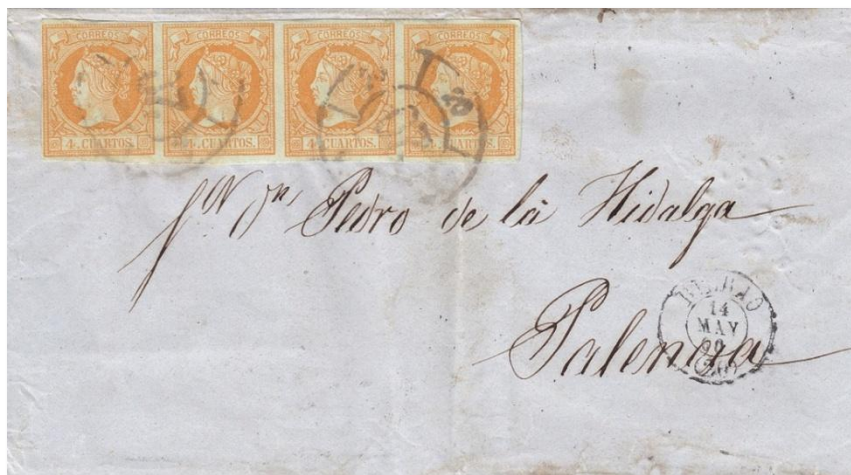 CORREOS CORREOS CORREOS CORREOS
4 CUARTOS. 4 CUARTOS. 4 CUARTOS. 4 CUARTOS.
Sr Dn Pedro de la Hidalga
Palencia
BILBAO
14
MAY